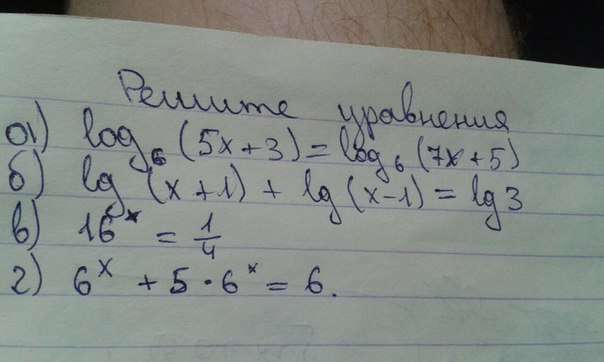 Решите уравнения
а) log₆ (5x+3) = log₆ (7x+5)
б) lg (x+1) + lg (x-1) = lg 3
в) 16ˣ = 1/4
г) 6ˣ + 5·6ˣ = 6.